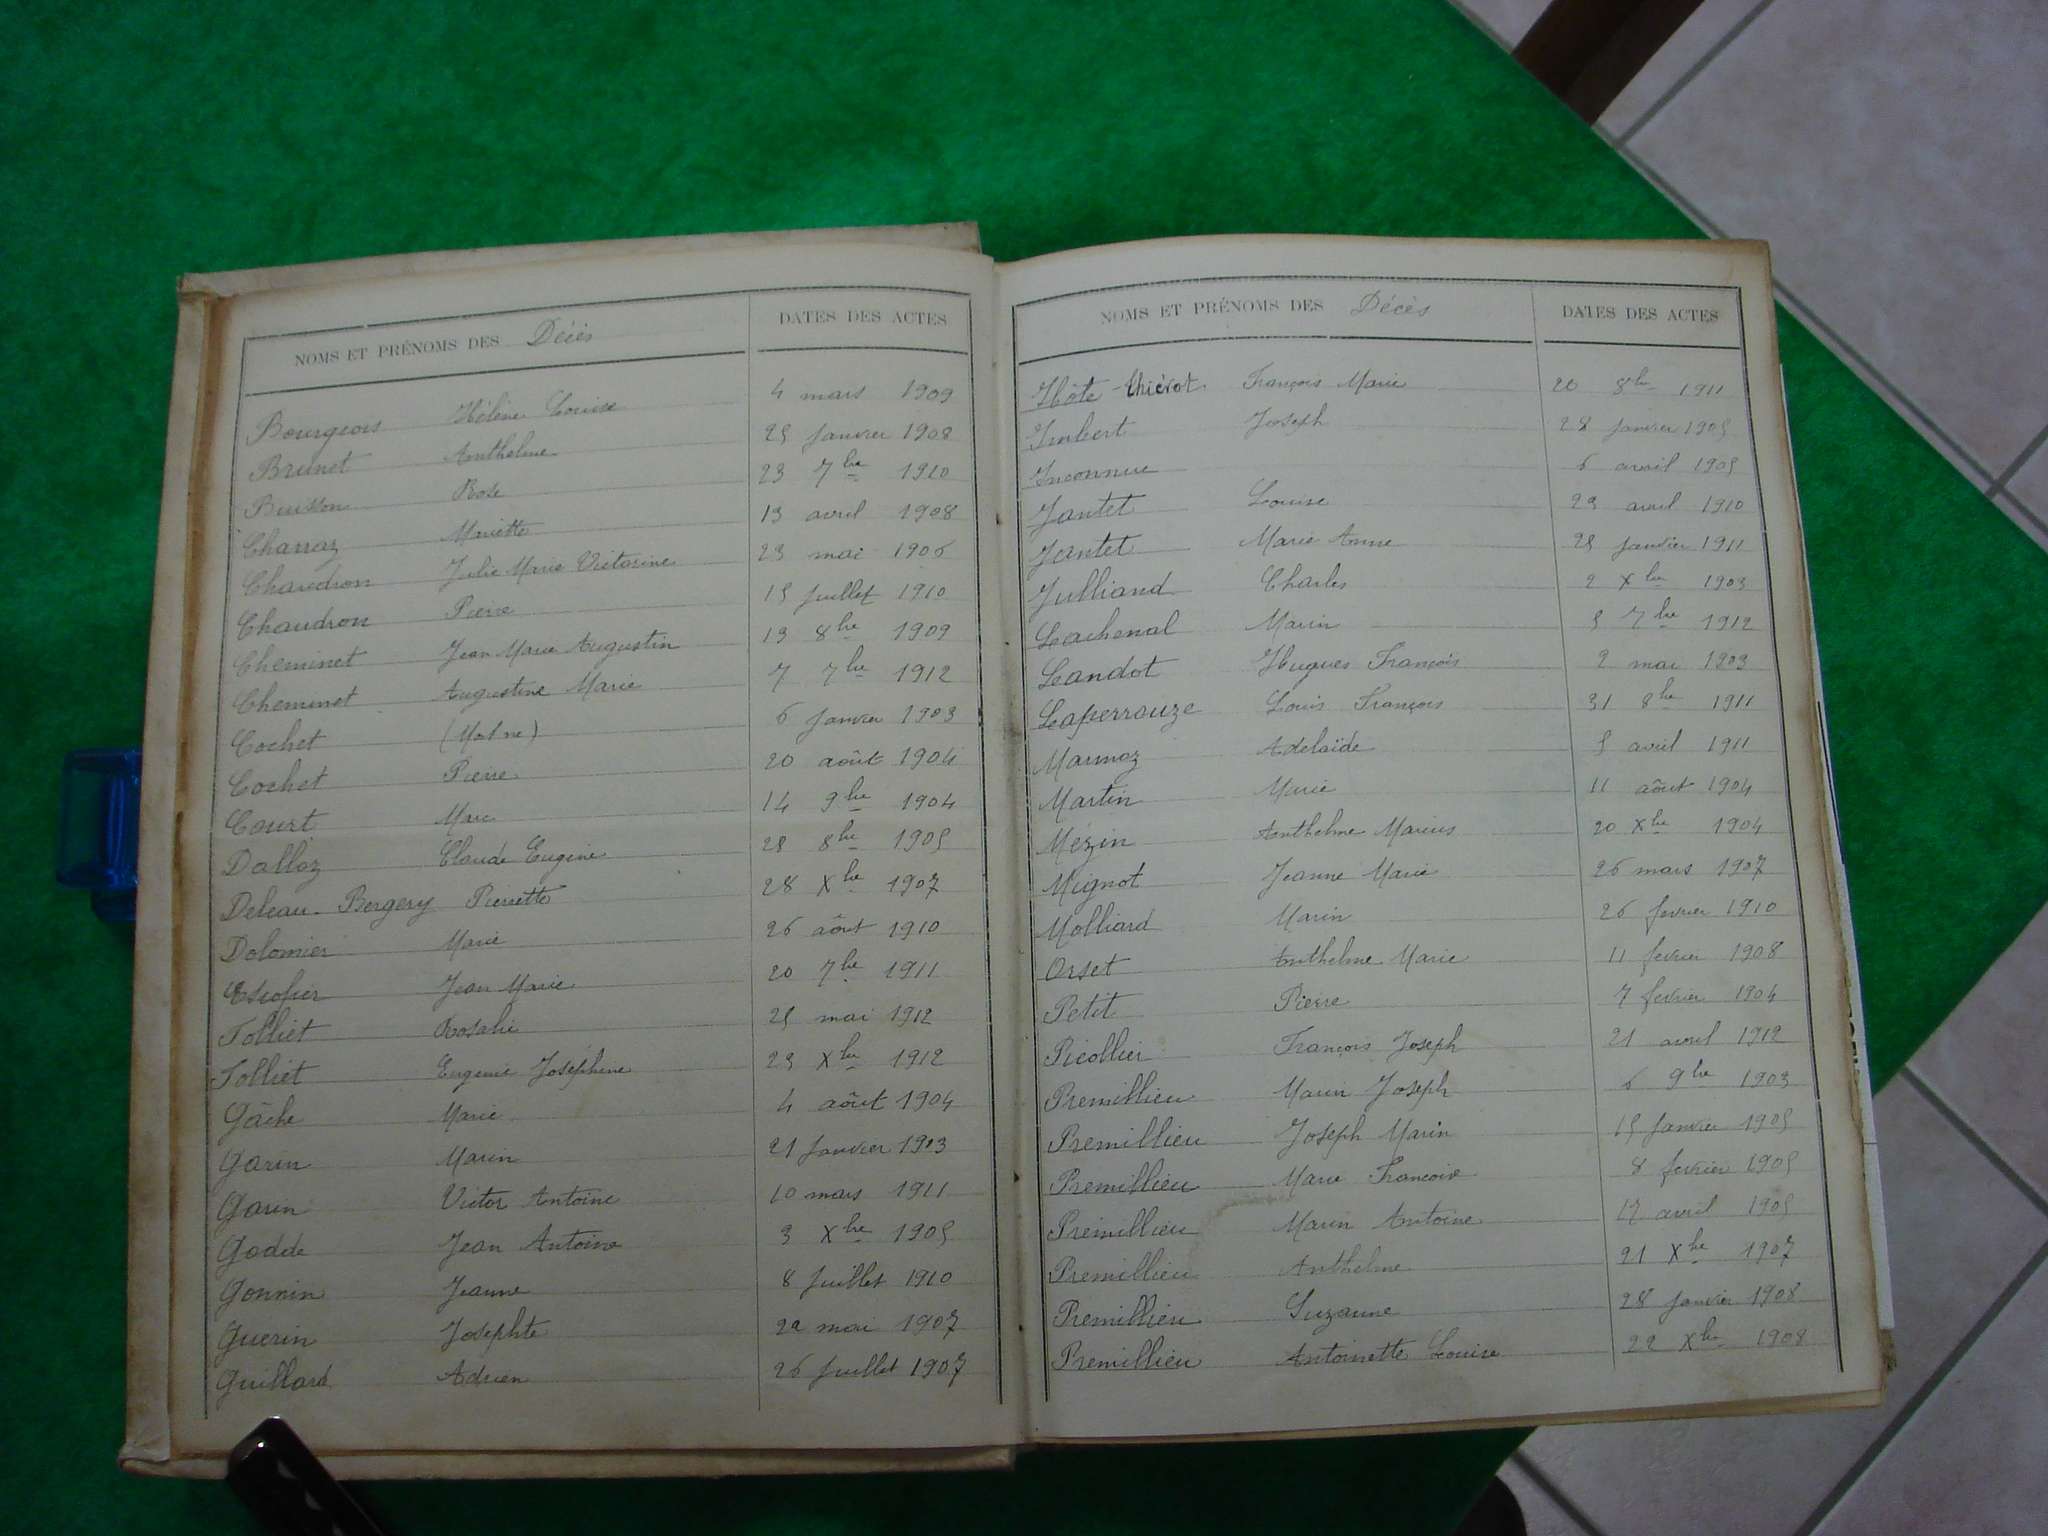 NOMS ET PRÉNOMS DES Décès DATES DES ACTES
Bourgeois Hélène Louise 4 mars 1909
Brunet Anthelme 25 Janvier 1908
Buisson Rose 23 7bre 1910
Charraz Mariette 13 avril 1908
Chaudron Julie Marie Victorine 23 mai 1906
Chaudron Pierre 15 Juillet 1910
Cheminet Jean Marie Augustin 13 8bre 1909
Cheminet Augustine Marie 7 7bre 1912
Cochet (Mort né) 6 Janvier 1903
Cochet Pierre 20 août 1904
Court Marc 14 9bre 1904
Dalloz Claude Eugène 28 8bre 1905
Deleau-Bergery Pierrette 28 Xbre 1907
Dolomier Marie 26 août 1910
Escofier Jean Marie 20 7bre 1911
Folliet Rosalie 25 mai 1912
Folliet Eugenie Joséphine 23 Xbre 1912
Gâche Marie 4 août 1904
Garin Marin 21 Janvier 1903
Garin Victor Antoine 10 mars 1911
Godde Jean Antoine 3 Xbre 1905
Gonnin Jeanne 8 Juillet 1910
Guerin Josephte mai 1907
Guillard Adrien 26 Juillet 1907
NOMS ET PRÉNOMS DES Décès DATES DES ACTES
Hôte-thiérot François Marie 20 8bre 1911
Imbert Joseph 28 Janvier 1905
Inconnue 6 avril 1905
Jantet Louise 23 avril 1910
Jantet Marie Anne 25 Janvier 1911
Julliand Charles 2 Xbre 1903
Lachenal Marin 5 7bre 1912
Landot Hugues François 2 mai 1903
Laperrouze Louis François 31 8bre 1911
Marmoz Adelaïde 5 avril 1911
Martin Marie 11 août 1904
Mézin Anthelme Marius 20 Xbre 1904
Mignot Jeanne Marie 26 mars 1907
Molliard Marin 26 fevrier 1910
Orset Anthelme Marie 11 fevrier 1908
Petit Pierre 7 fevrier 1904
Picollier François Joseph 21 avril 1912
Premillieu Marin Joseph 6 9bre 1903
Premillieu Joseph Marin 15 Janvier 1905
Premillieu Marie Françoise 8 fevrier 1905
Premillieu Marin Antoine 17 avril 1905
Premillieu Anthelme 21 Xbre 1907
Premillieu Suzanne 28 Janvier 1908
Premillieu Antoinette Louise 22 Xbre 1908